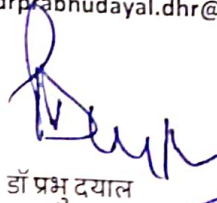 urprabhudayal.dhr@
डॉ प्रभु दयाल